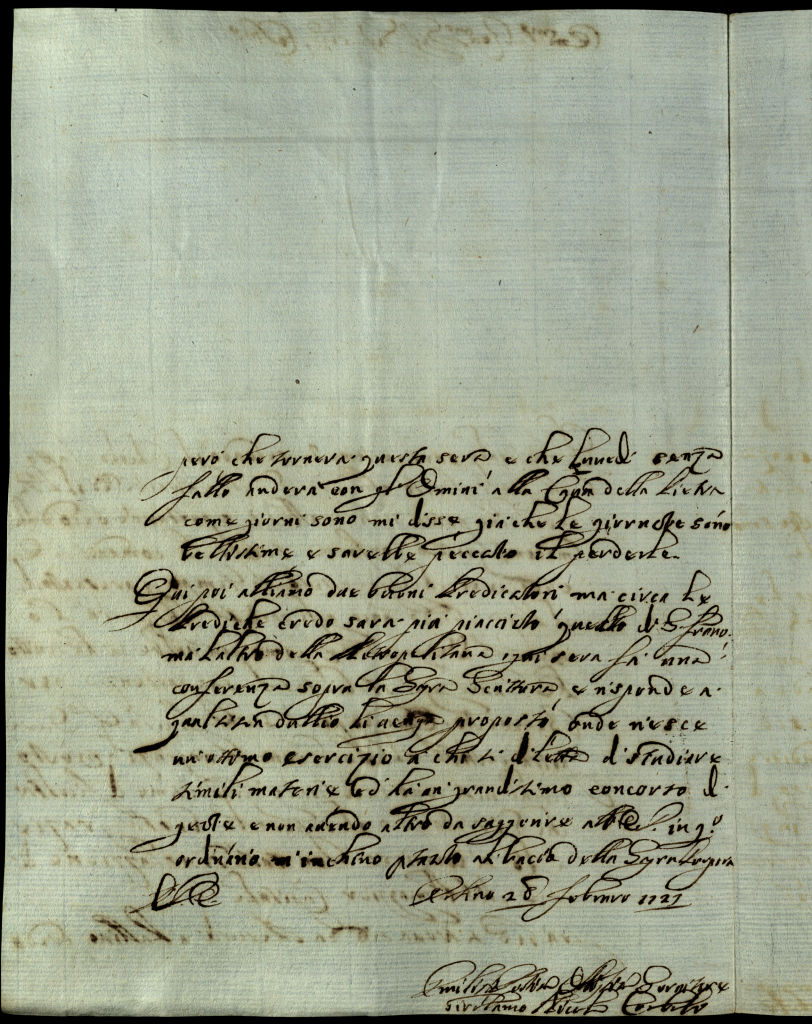 però che tornerà questa sera e che lunedì senza
fallo anderà con gl'Omini alla della Pietra
come giorni sono mi disse già che le giornate sono
bellissime e sarebbe peccato il perderle.
Qui poi abbiamo due buoni Predicatori ma circa le
Prediche credo sarà più piacciuto quello di S. Franco.
ma l'altro della Metropolitana ogni sera fa una
conferenza sopra la Sgra Scittura e risponde a
dubio li venga proposto, onde riesce
un ottimo esercizio a chi si diletta di studiare
simili materie ed ha un grandissimo concorso di
gente e non avendo altro da saggerire a in qo
ordinario m'inchino al baccio della Sgra Porpora
Urbino 28 Febraro 1727
Umilissimo
Girolamo